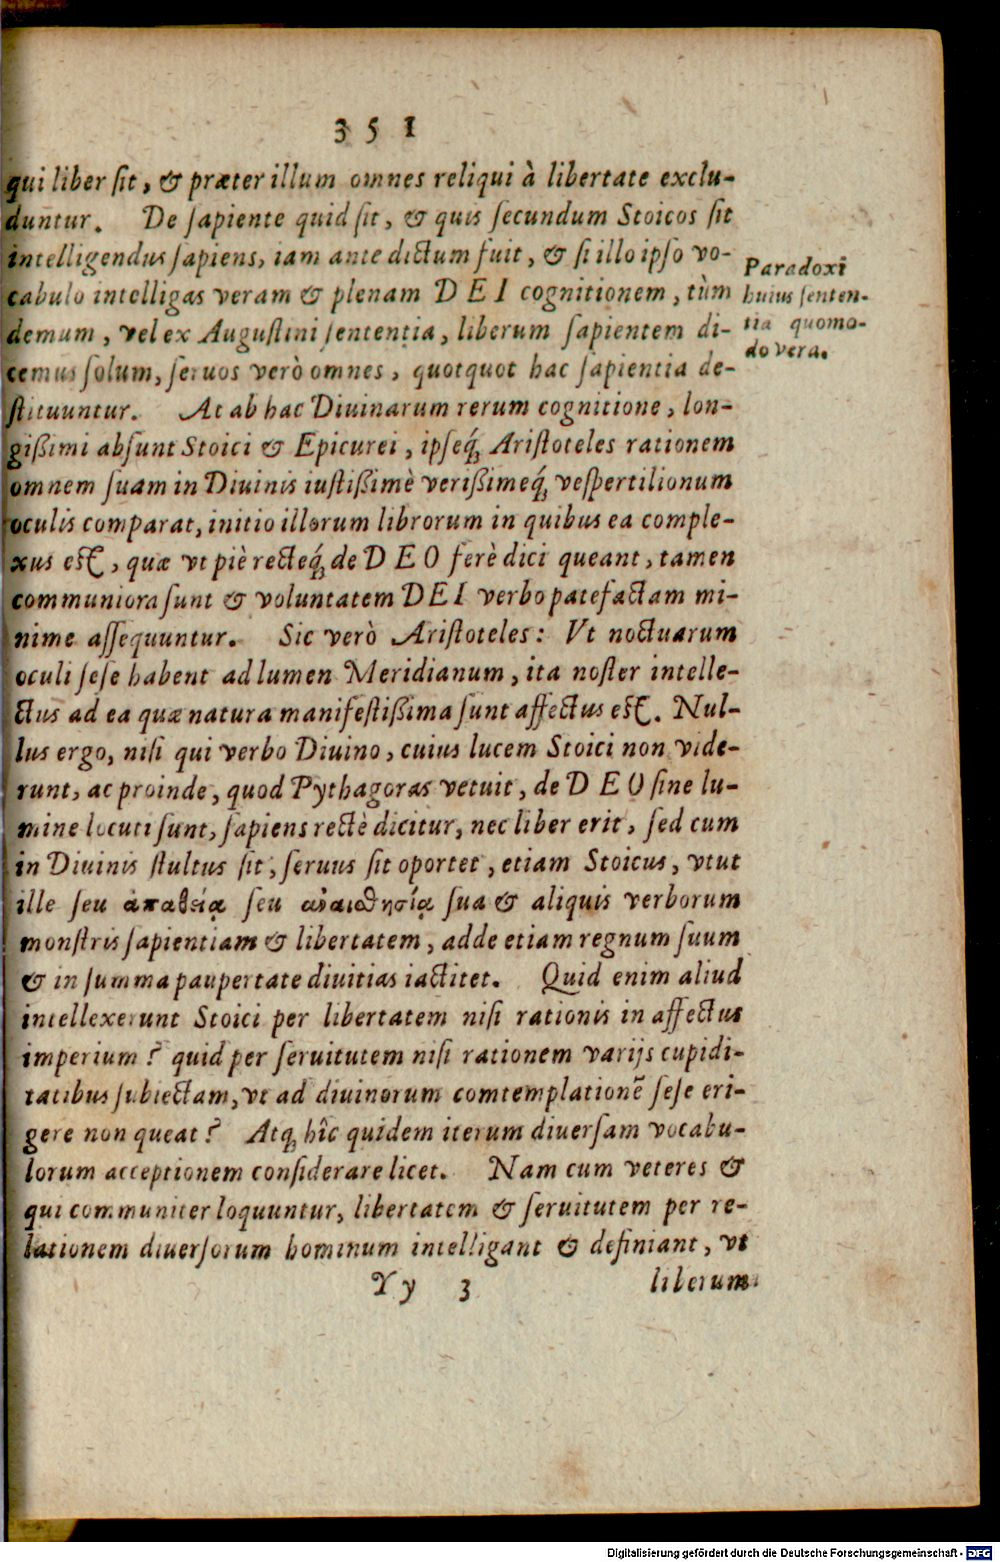 351
qui liber ſit, & præter illum omnes reliqui à libertate exclu-
duntur. De ſapiente quid ſit, & quis ſecundum Stoicos ſit
intelligendus ſapiens, iam ante dictum fuit, & ſi illo ipſo vo-
cabulo intelligas veram & plenam DEI cognitionem, tùm
demum, vel ex Auguſtini ſententia, liberum ſapientem di-
cemus ſolum, ſeruos verò omnes, quotquot hac ſapientia de-
ſtituuntur. At ab hac Diuinarum rerum cognitione, lon-
gißimi abſunt Stoici & Epicurei, ipſeq́; Ariſtoteles rationem
omnem ſuam in Diuinis iuſtißimè verißimeq́; veſpertilionum
oculis comparat, initio illorum librorum in quibus ea comple-
xus eſt, quæ vt piè recteq́; de DEO ferè dici queant, tamen
communiora ſunt & voluntatem DEI verbo patefactam mi-
nime aſſequuntur. Sic verò Ariſtoteles: Vt noctuarum
oculi ſeſe habent ad lumen Meridianum, ita noſter intelle-
ctus ad ea quæ natura manifeſtißima ſunt affectus eſt. Nul-
lus ergo, niſi qui verbo Diuino, cuius lucem Stoici non vide-
runt, ac proinde, quod Pythagoras vetuit, de DEO ſine lu-
mine locuti ſunt, ſapiens rectè dicitur, nec liber erit, ſed cum
in Diuinis ſtultus ſit, ſeruus ſit oportet, etiam Stoicus, vtut
ille ſeu ἀπαθείᾳ ſeu ἀναισθησίᾳ ſua & aliquis verborum
monſtris ſapientiam & libertatem, adde etiam regnum ſuum
& in ſumma paupertate diuitias iactitet. Quid enim aliud
intellexerunt Stoici per libertatem niſi rationis in affectus
imperium? quid per ſeruitutem niſi rationem varijs cupidi-
tatibus ſubiectam, vt ad diuinorum comtemplationē ſeſe eri-
gere non queat? Atq; hîc quidem iterum diuerſam vocabu-
lorum acceptionem conſiderare licet. Nam cum veteres &
qui communiter loquuntur, libertatem & ſeruitutem per re-
lationem diuerſorum hominum intelligant & definiant, vt
Yy 3 liberum
Paradoxi
huius ſenten-
tia quomo-
do vera.
Digitalisierung gefördert durch die Deutsche Forschungsgemeinschaft - DFG